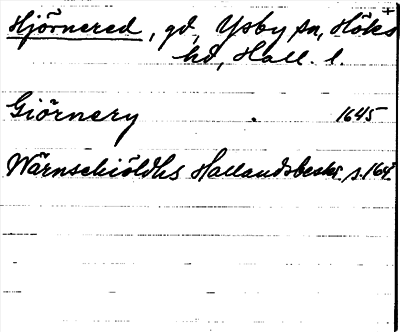 Hjörnered, gd, Ysby sn, Höks
hd, Hall. l.
Giörnery 1645
Wärnschiöldhs Hallandsbeskr. s. 164